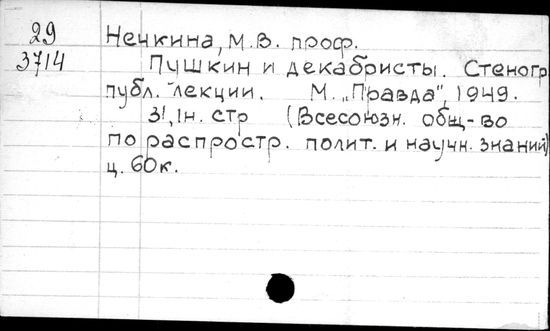 29
3714
Нечкина, М.В. проф.
Пушкин и декабристы. Стеногр.
публ. лекции. М. „Правда", 1949.
31, 1н. стр (Всесоюзн. общ-во
по распростр. полит. и научн. знаний)
ц. 60к.